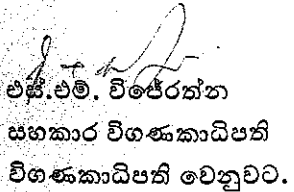 එස්.එම්. විජේරත්න
සහකාර විගණකාධිපති
විගණකාධිපති වෙනුවට.